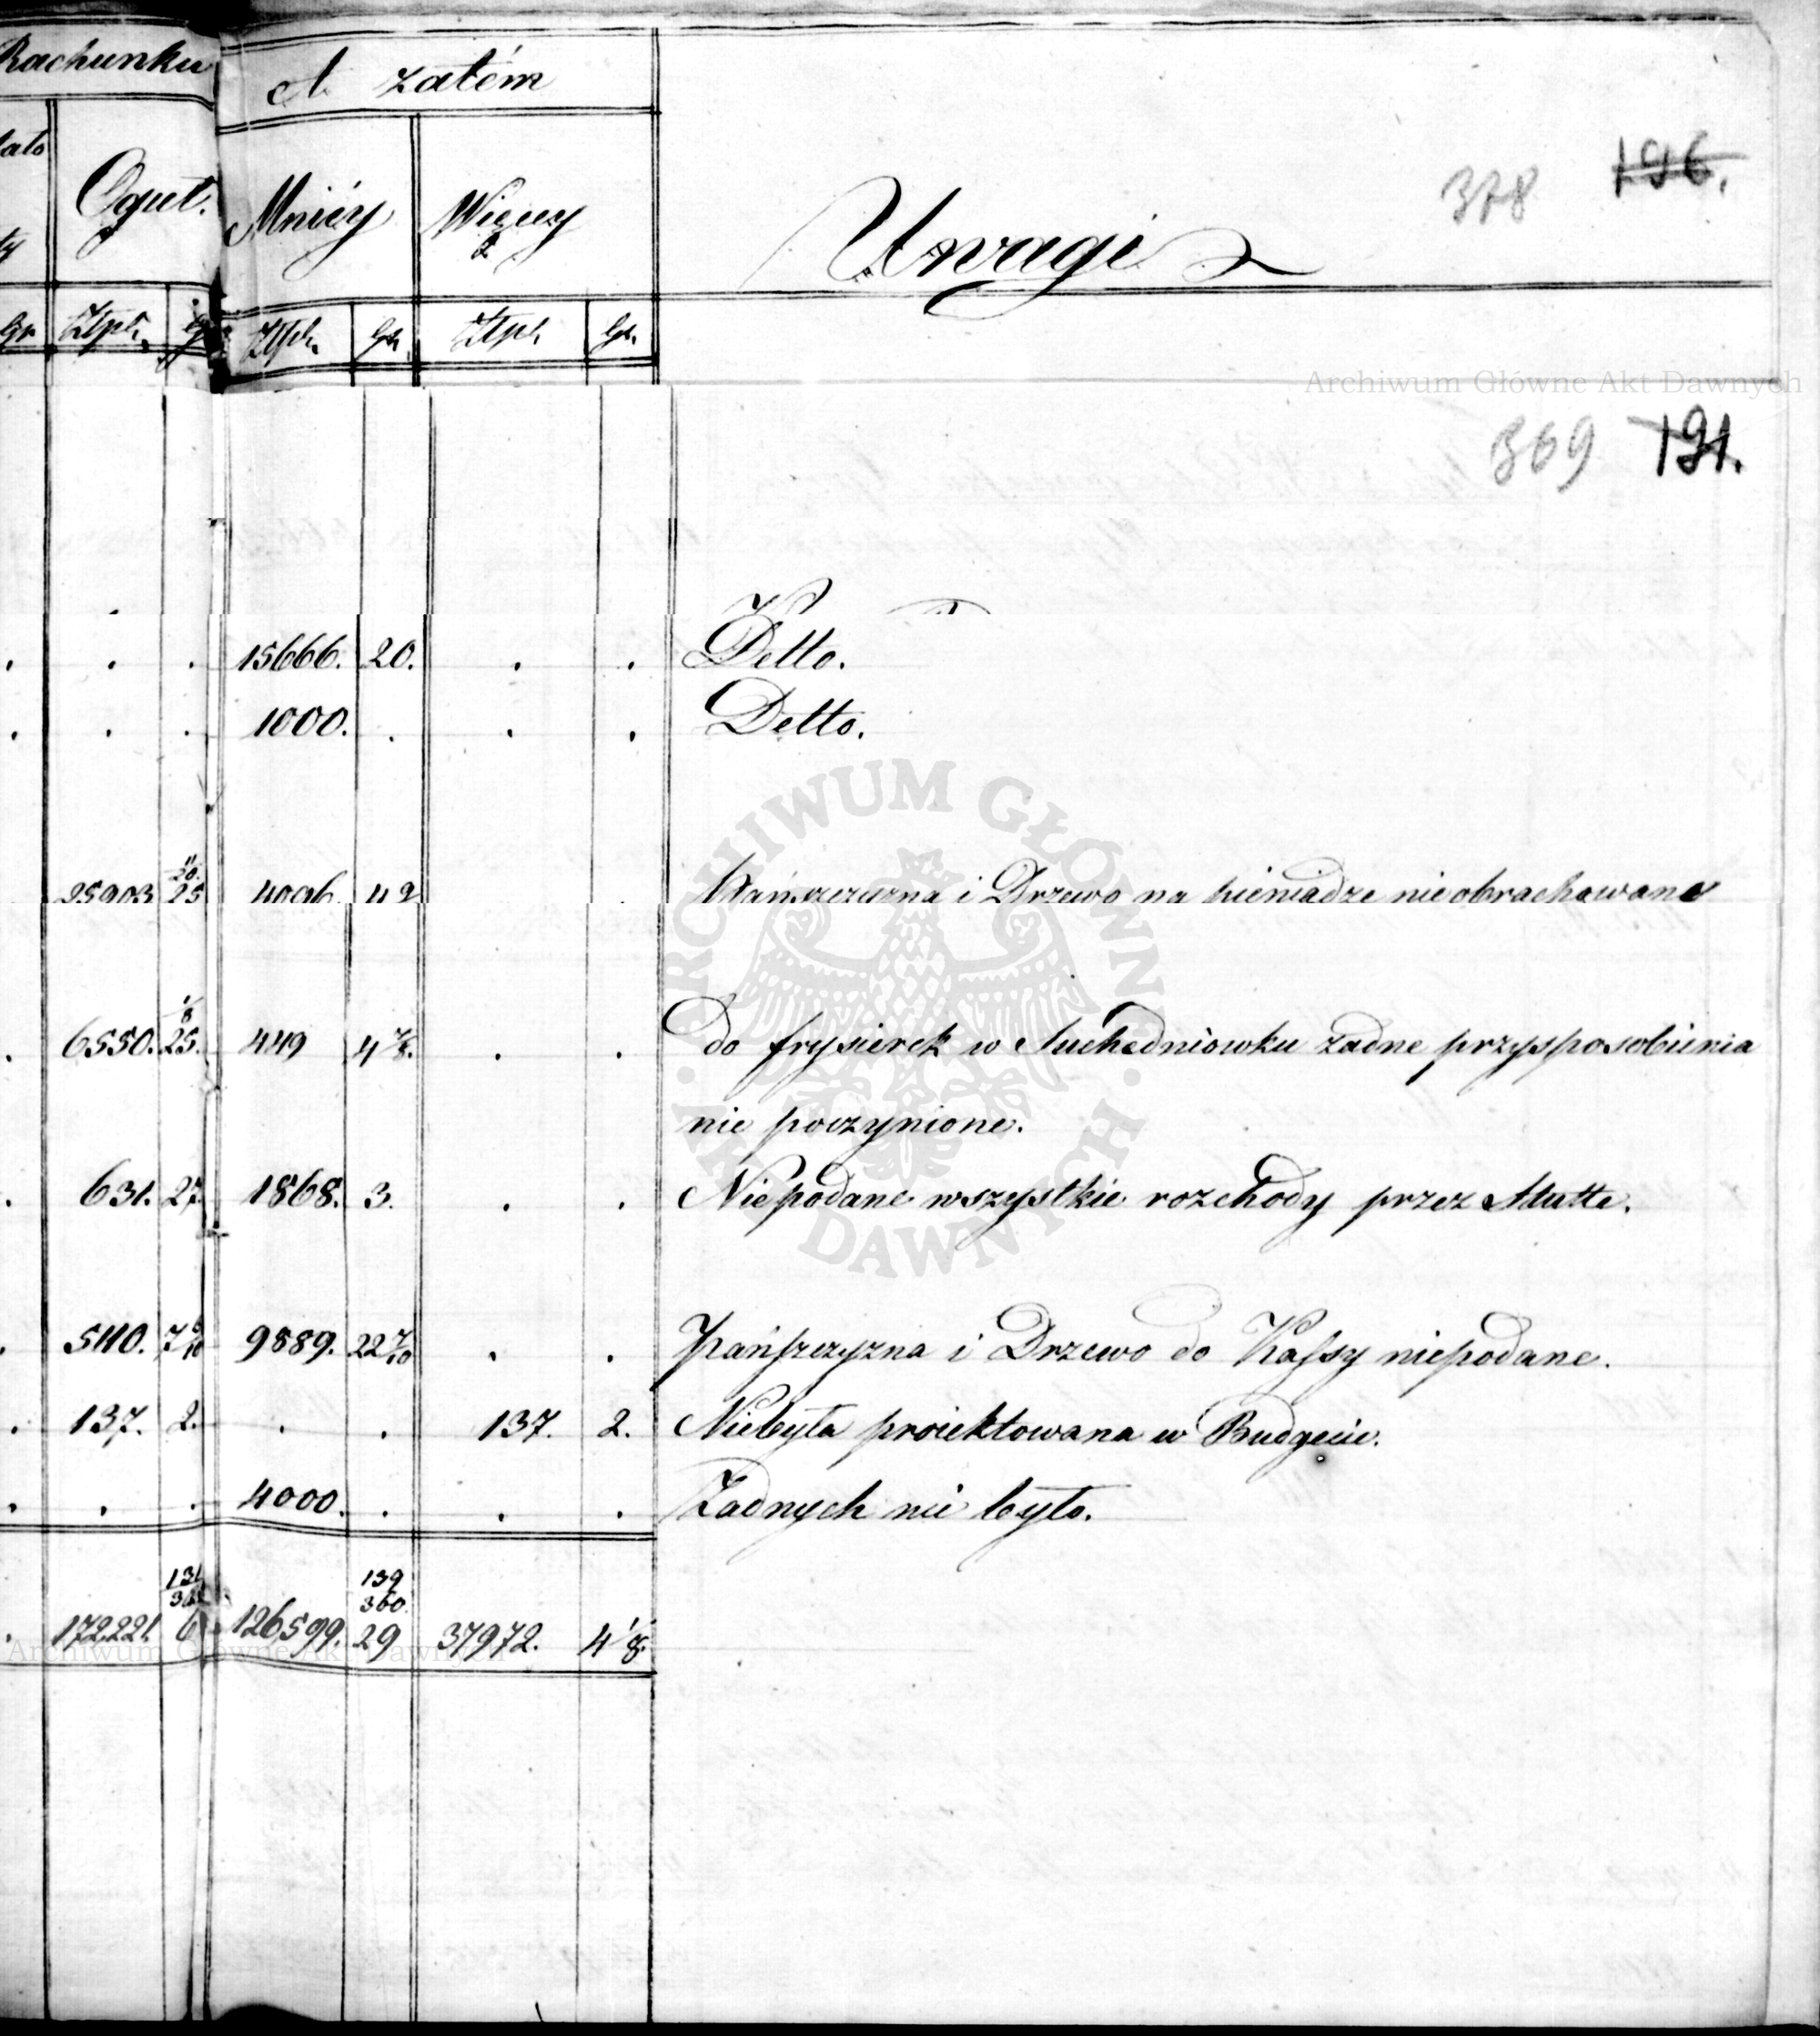 Rachunku
A zatém
Oguł.
Mniéy
Więcey
Uwagi
378 196.
gr Złpl. Złpl. Gr. Złpl. Gr.
Archiwum Główne Akt Dawnych
369 191.
15666. 20. Detto.
1000. Detto.
25903 25 4096 Pańszczyzna i Drzewo na pieniądze nieobrachowane
6550. 25. 1/8 449 4 7/8. do frysierek w Suchedniowku żadne przysposobienia
nie poczynione.
631. 27. 1868. 3. Niepodane wszystkie rozchody przez Mutte.
5110. 7 3/10 9889. 22 7/10 Pańszczyzna i Drzewo do Kassy niepodane.
137. 2. 137. 2. Niebyła proiektowana w Budgecie.
4000. Żadnych nie było.
172221. 6 126599. 29 139/360 37972. 4 1/8.
Archiwum Główne Akt Dawnych
ARCHIWUM GŁÓWNE AKT DAWNYCH